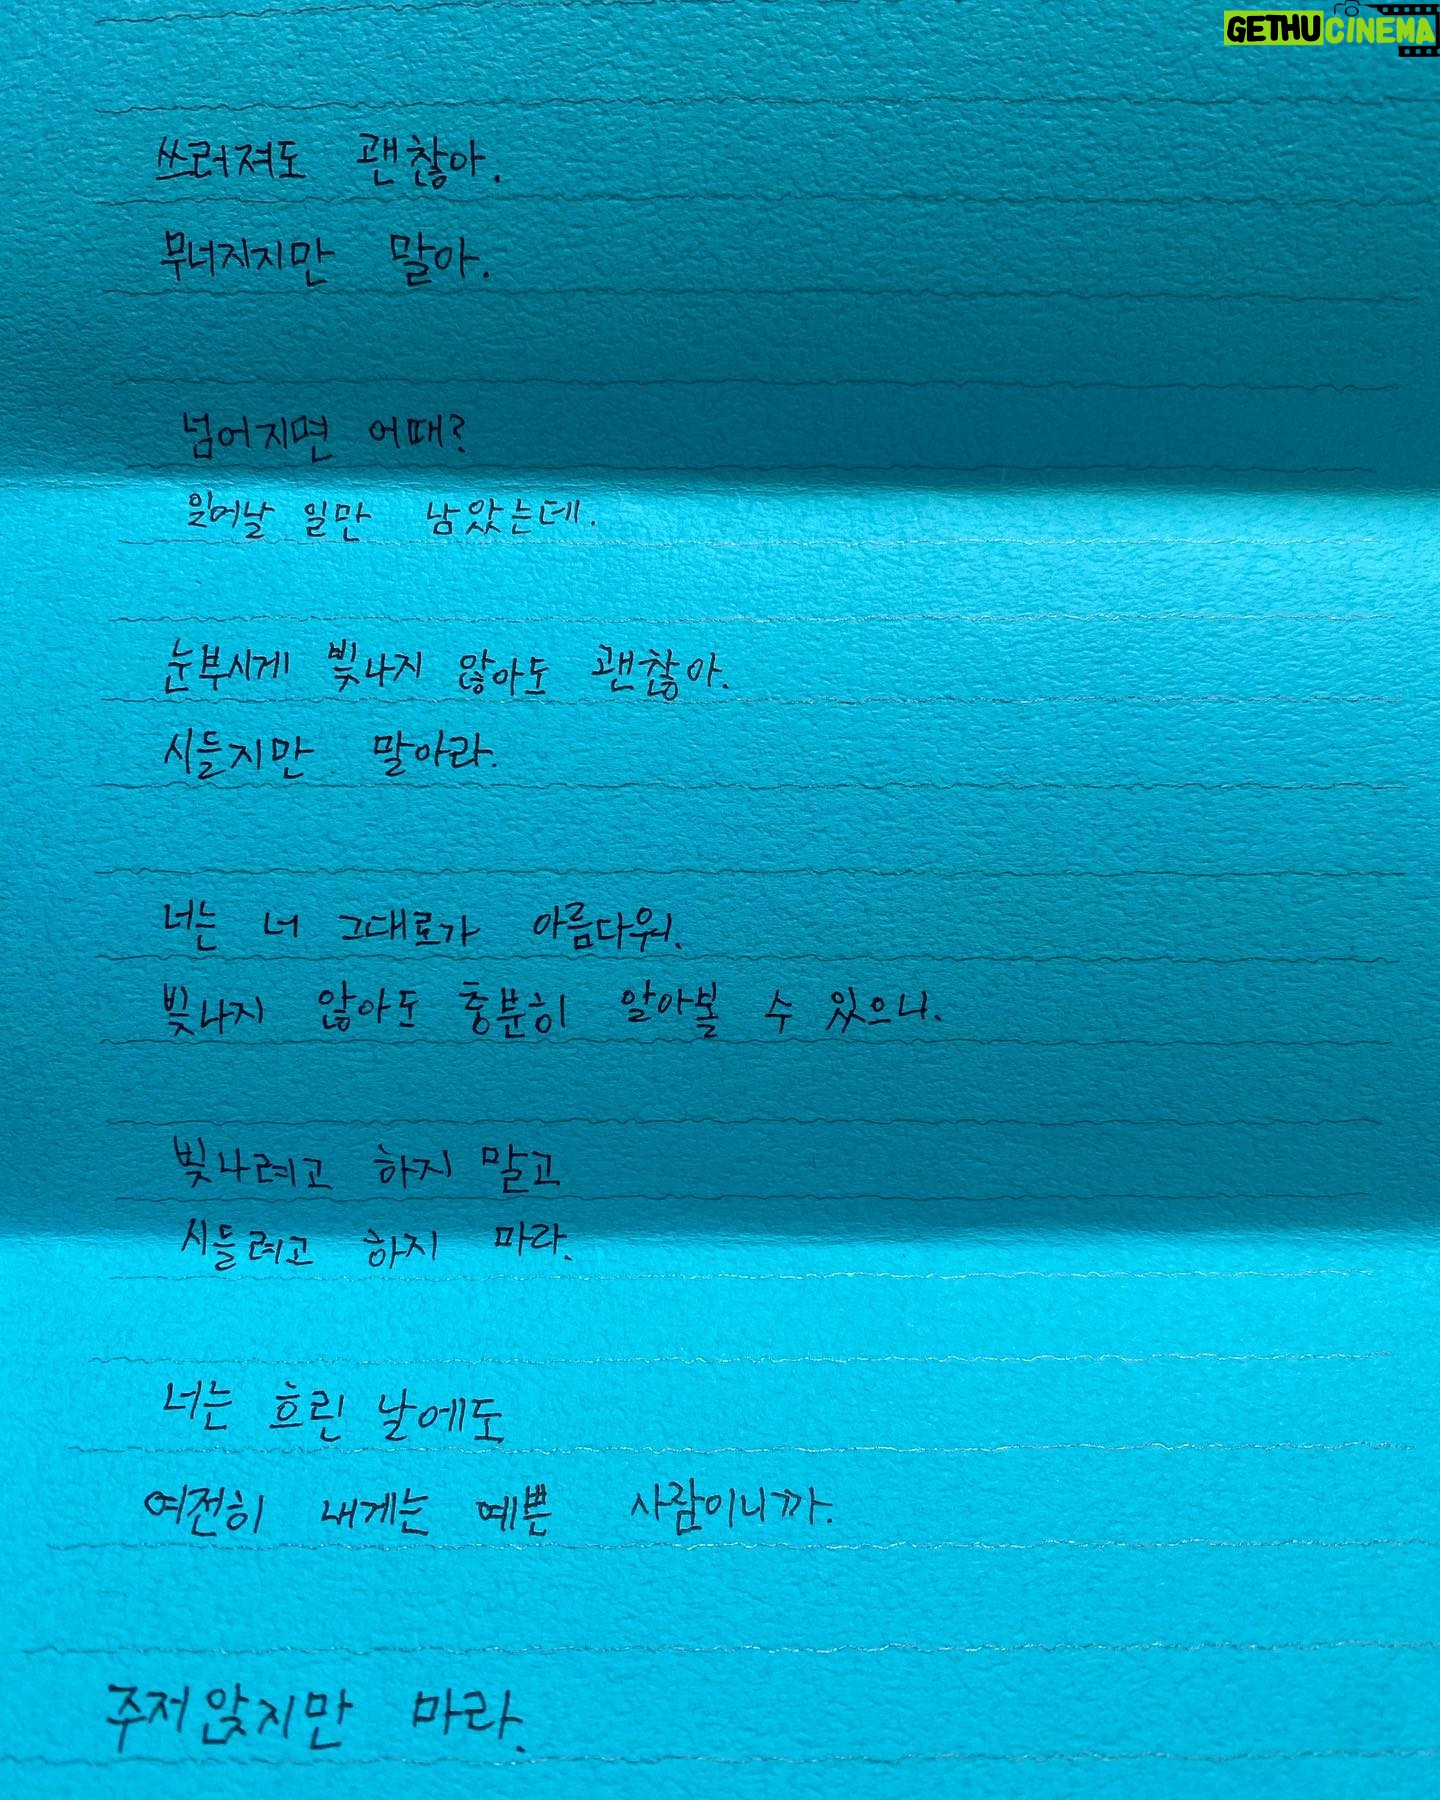 GETHUCINEMA
쓰러져도 괜찮아.
무너지지만 말아.
넘어지면 어때?
일어날 일만 남았는데.
눈부시게 빛나지 않아도 괜찮아.
시들지만 말아라.
너는 너 그대로가 아름다워.
빛나지 않아도 충분히 알아볼 수 있으니.
빛나려고 하지 말고
시들려고 하지 마라.
너는 흐린 날에도
여전히 내게는 예쁜 사람이니까.
주저앉지만 마라.